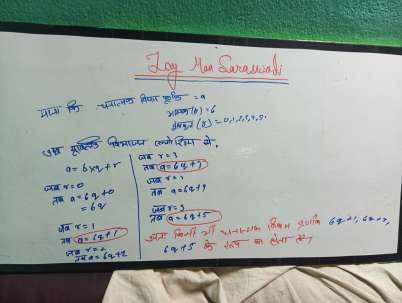 Jay Maa Saraswati
माना कि धनात्मक विषम पूर्णांक = a
भाजक (b) = 6
शेषफल (r) = 0,1,2,3,4,5.
अब यूक्लिड विभाजन एल्गोरिथ्म से,
a = 6×q+r
जब r=0
तब a=6q+0
=6q
जब r=1
तब a=6q+1
जब r=2
तब a=6q+2
जब r=3
तब a=6q+3
जब r=
तब a=6q+4
जब r=5
तब a=6q+5
अतः किसी भी धनात्मक विषम पूर्णांक 6q+1, 6q+3,
6q+5 के रूप का होता है।